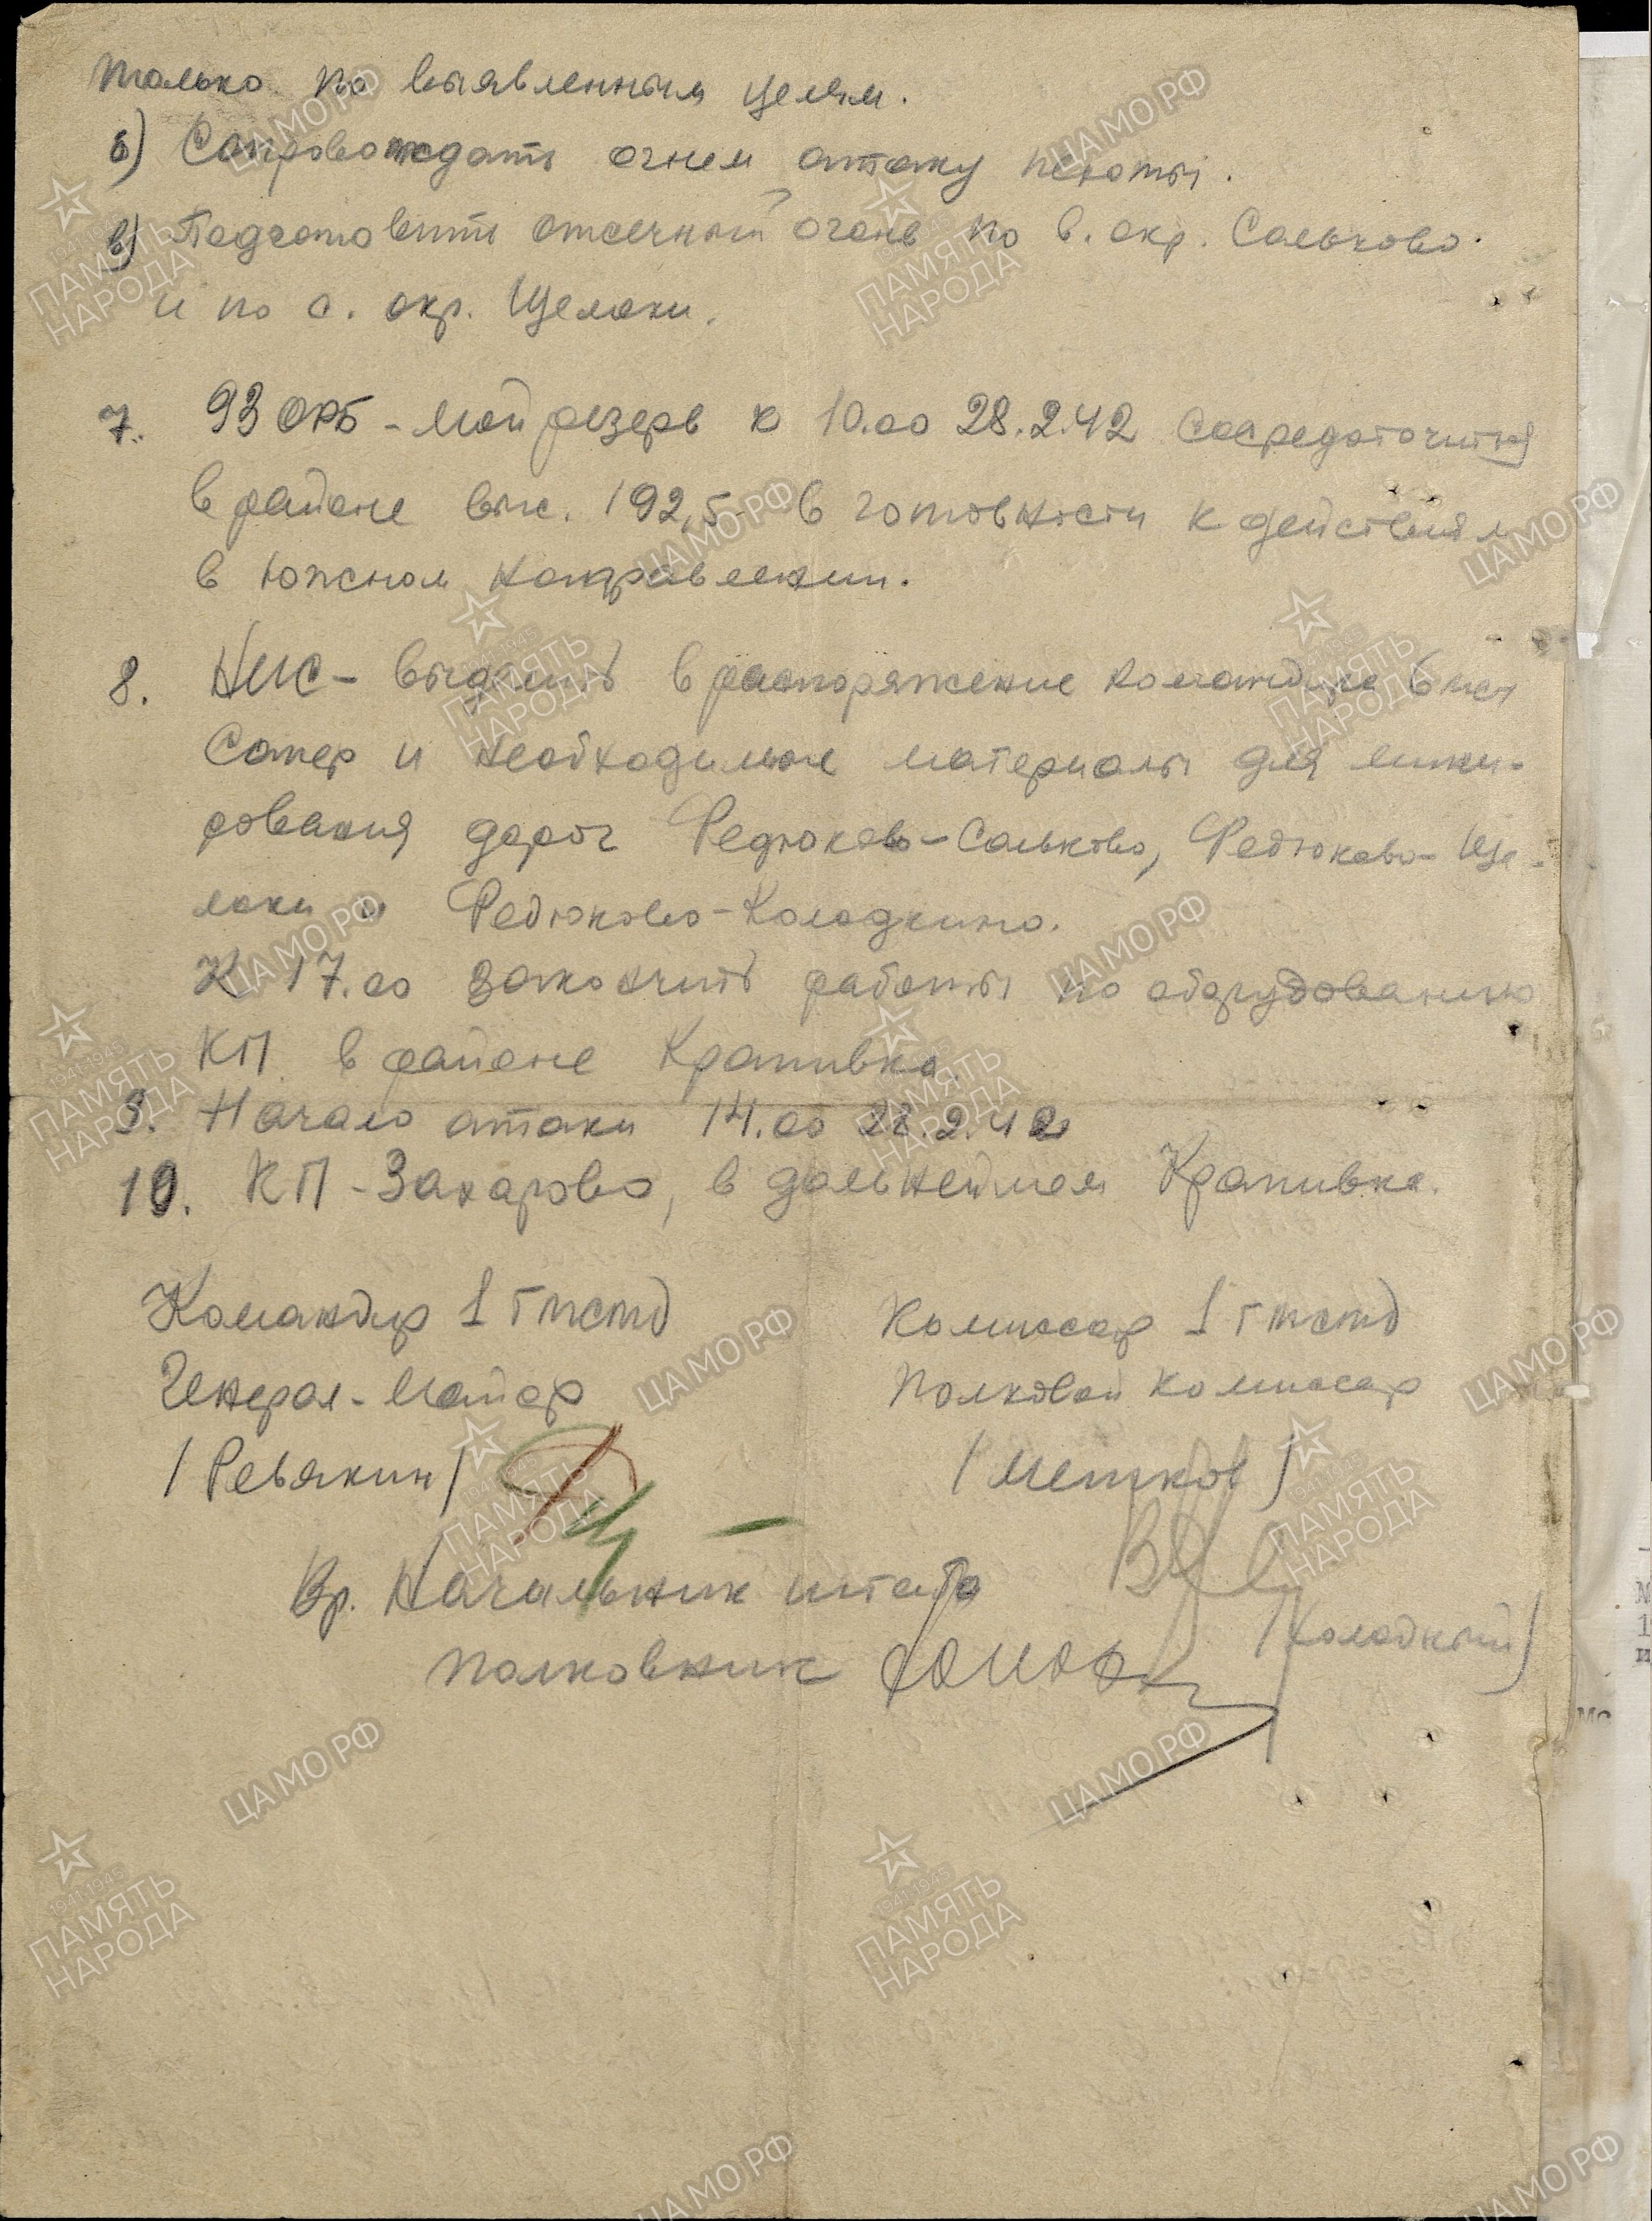 только по выявленным целям.
б) Сопровождать огнем атаку пехоты.
в) Подготовить отсечный огонь по в. окр. Сальково.
и по с. окр. Щелоки.
7. 93 ОРБ - мой резерв к 10.00 28.2.42 сосредоточиться
в районе выс. 192,5 в готовности к действиям
в южном направлении.
8. НИС - выделить в распоряжение командира 6 мсп
сапер и необходимые материалы для мини-
рования дорог Федюково-Сальково, Федюково-Ще-
локи и Федюково-Колодкино.
К 17.00 закончить работы по оборудованию
КП в районе Крапивка.
9. Начало атаки 14.00 28.2.42
10. КП - Захарово, в дальнейшем Крапивка.
Командир 1 Гмсмд
Комиссар 1 Гмсмд
Генерал-Майор
Полковой комиссар
/Ревякин/
/Мешков/
Вр. Начальник штаба
полковник
/Холодный/
ЦАМО РФ
1941-1945
ПАМЯТЬ
НАРОДА